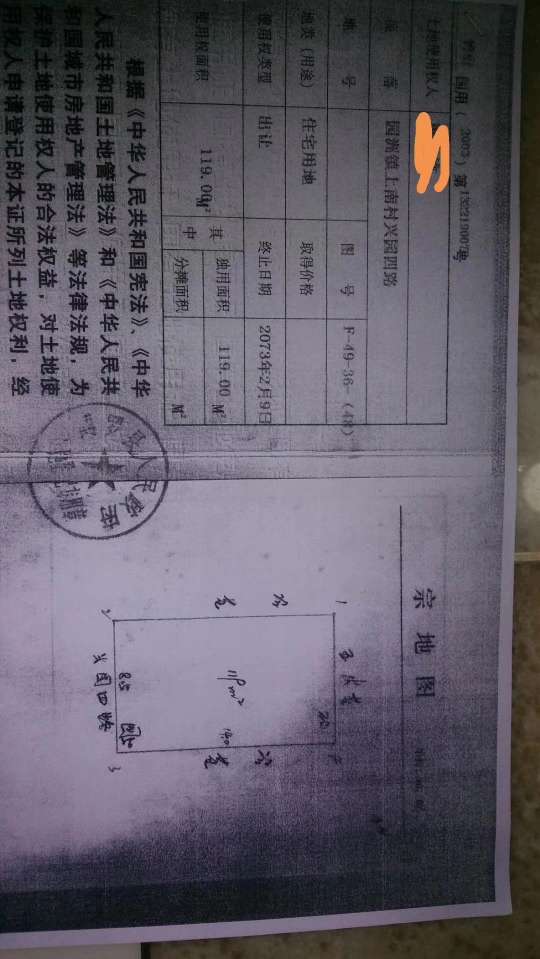 国用（2003）第1322190075号
土地使用权人
座 落 园洲镇上南村兴园四路
地 号 图 号 F-49-36-(48)
地类（用途） 住宅用地 取得价格
使用权类型 出让 终止日期 2073年2月9日
使用权面积 119.00 M² 其中 独用面积 119.00 M²
分摊面积 M²
根据《中华人民共和国宪法》、《中华
人民共和国土地管理法》和《中华人民共
和国城市房地产管理法》等法律法规，为
保护土地使用权人的合法权益，对土地使
用权人申请登记的本证所列土地权利，经
宗 地 图
1
2
3
119m²
140
8.5
兴园四路
县人民